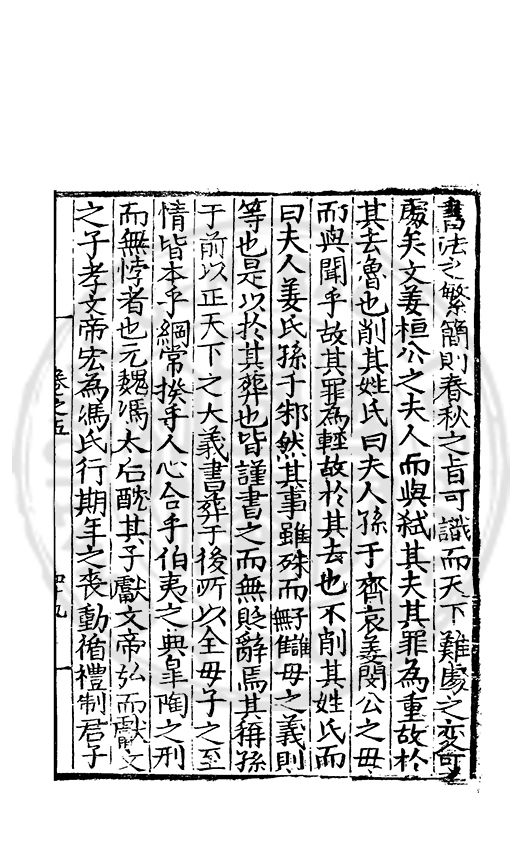 書法之繁簡則春秋之旨可識而天下難處之変可
處矣文姜桓公之夫人而與弑其夫其罪為重故於
其去魯也削其姓氏曰夫人孫于齊哀姜閔公之毋
而與聞乎故其罪為輕故於其去也不削其姓氏而
曰夫人姜氏孫于邾然其事雖殊而無讎母之義則
等也是以於其葬也皆謹書之而無貶辭焉其稱孫
于前以正天下之大義書葬于後所以全毋子之至
情皆本乎綱常揆乎人心合乎伯夷之典臯陶之刑
而無悖者也元魏馮太后酖其子獻文帝弘而獻文
之子孝文帝宏為馮氏行期年之喪動循禮制君子
卷之五
四十九